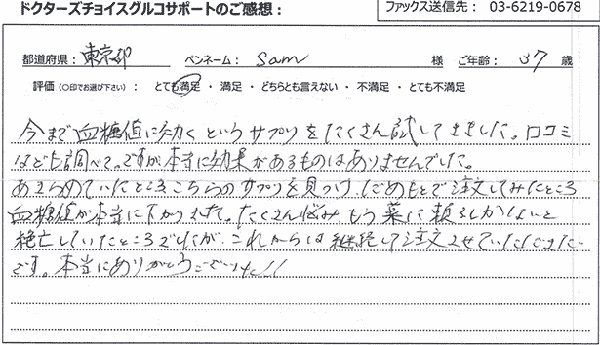 ドクターズチョイスグルコサポートのご感想：
ファックス送信先： 03-6219-0678
都道府県： 東京都 ペンネーム： sam 様 ご年齢： 37 歳
評価（○印でお選び下さい） とても満足 ・ 満足 ・ どちらとも言えない ・ 不満足 ・ とても不満足
今まで血糖値に効くというサプリをたくさん試してきました。口コミ
なども調べて。ですが、本当に効果があるものはありませんでした。
あきらめていたところこちらのサプリを見つけ、だめもとで注文してみたところ
血糖値が本当に下がりました。たくさん悩みもう薬に頼るしかないと
絶望していたところでしたが、これからは継続して注文させていただきたい
です。本当にありがとうございました!!